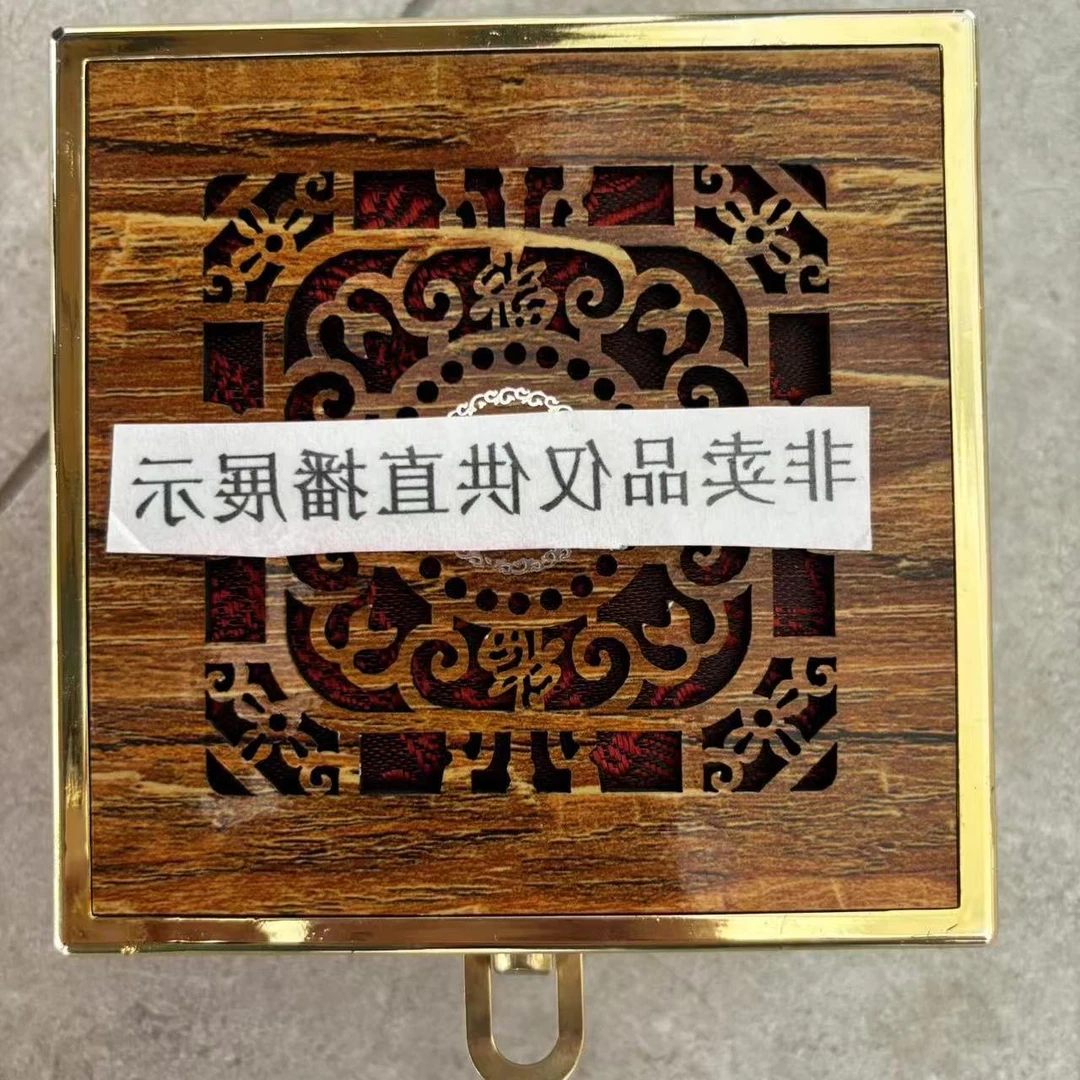 非卖品仅供直播展示